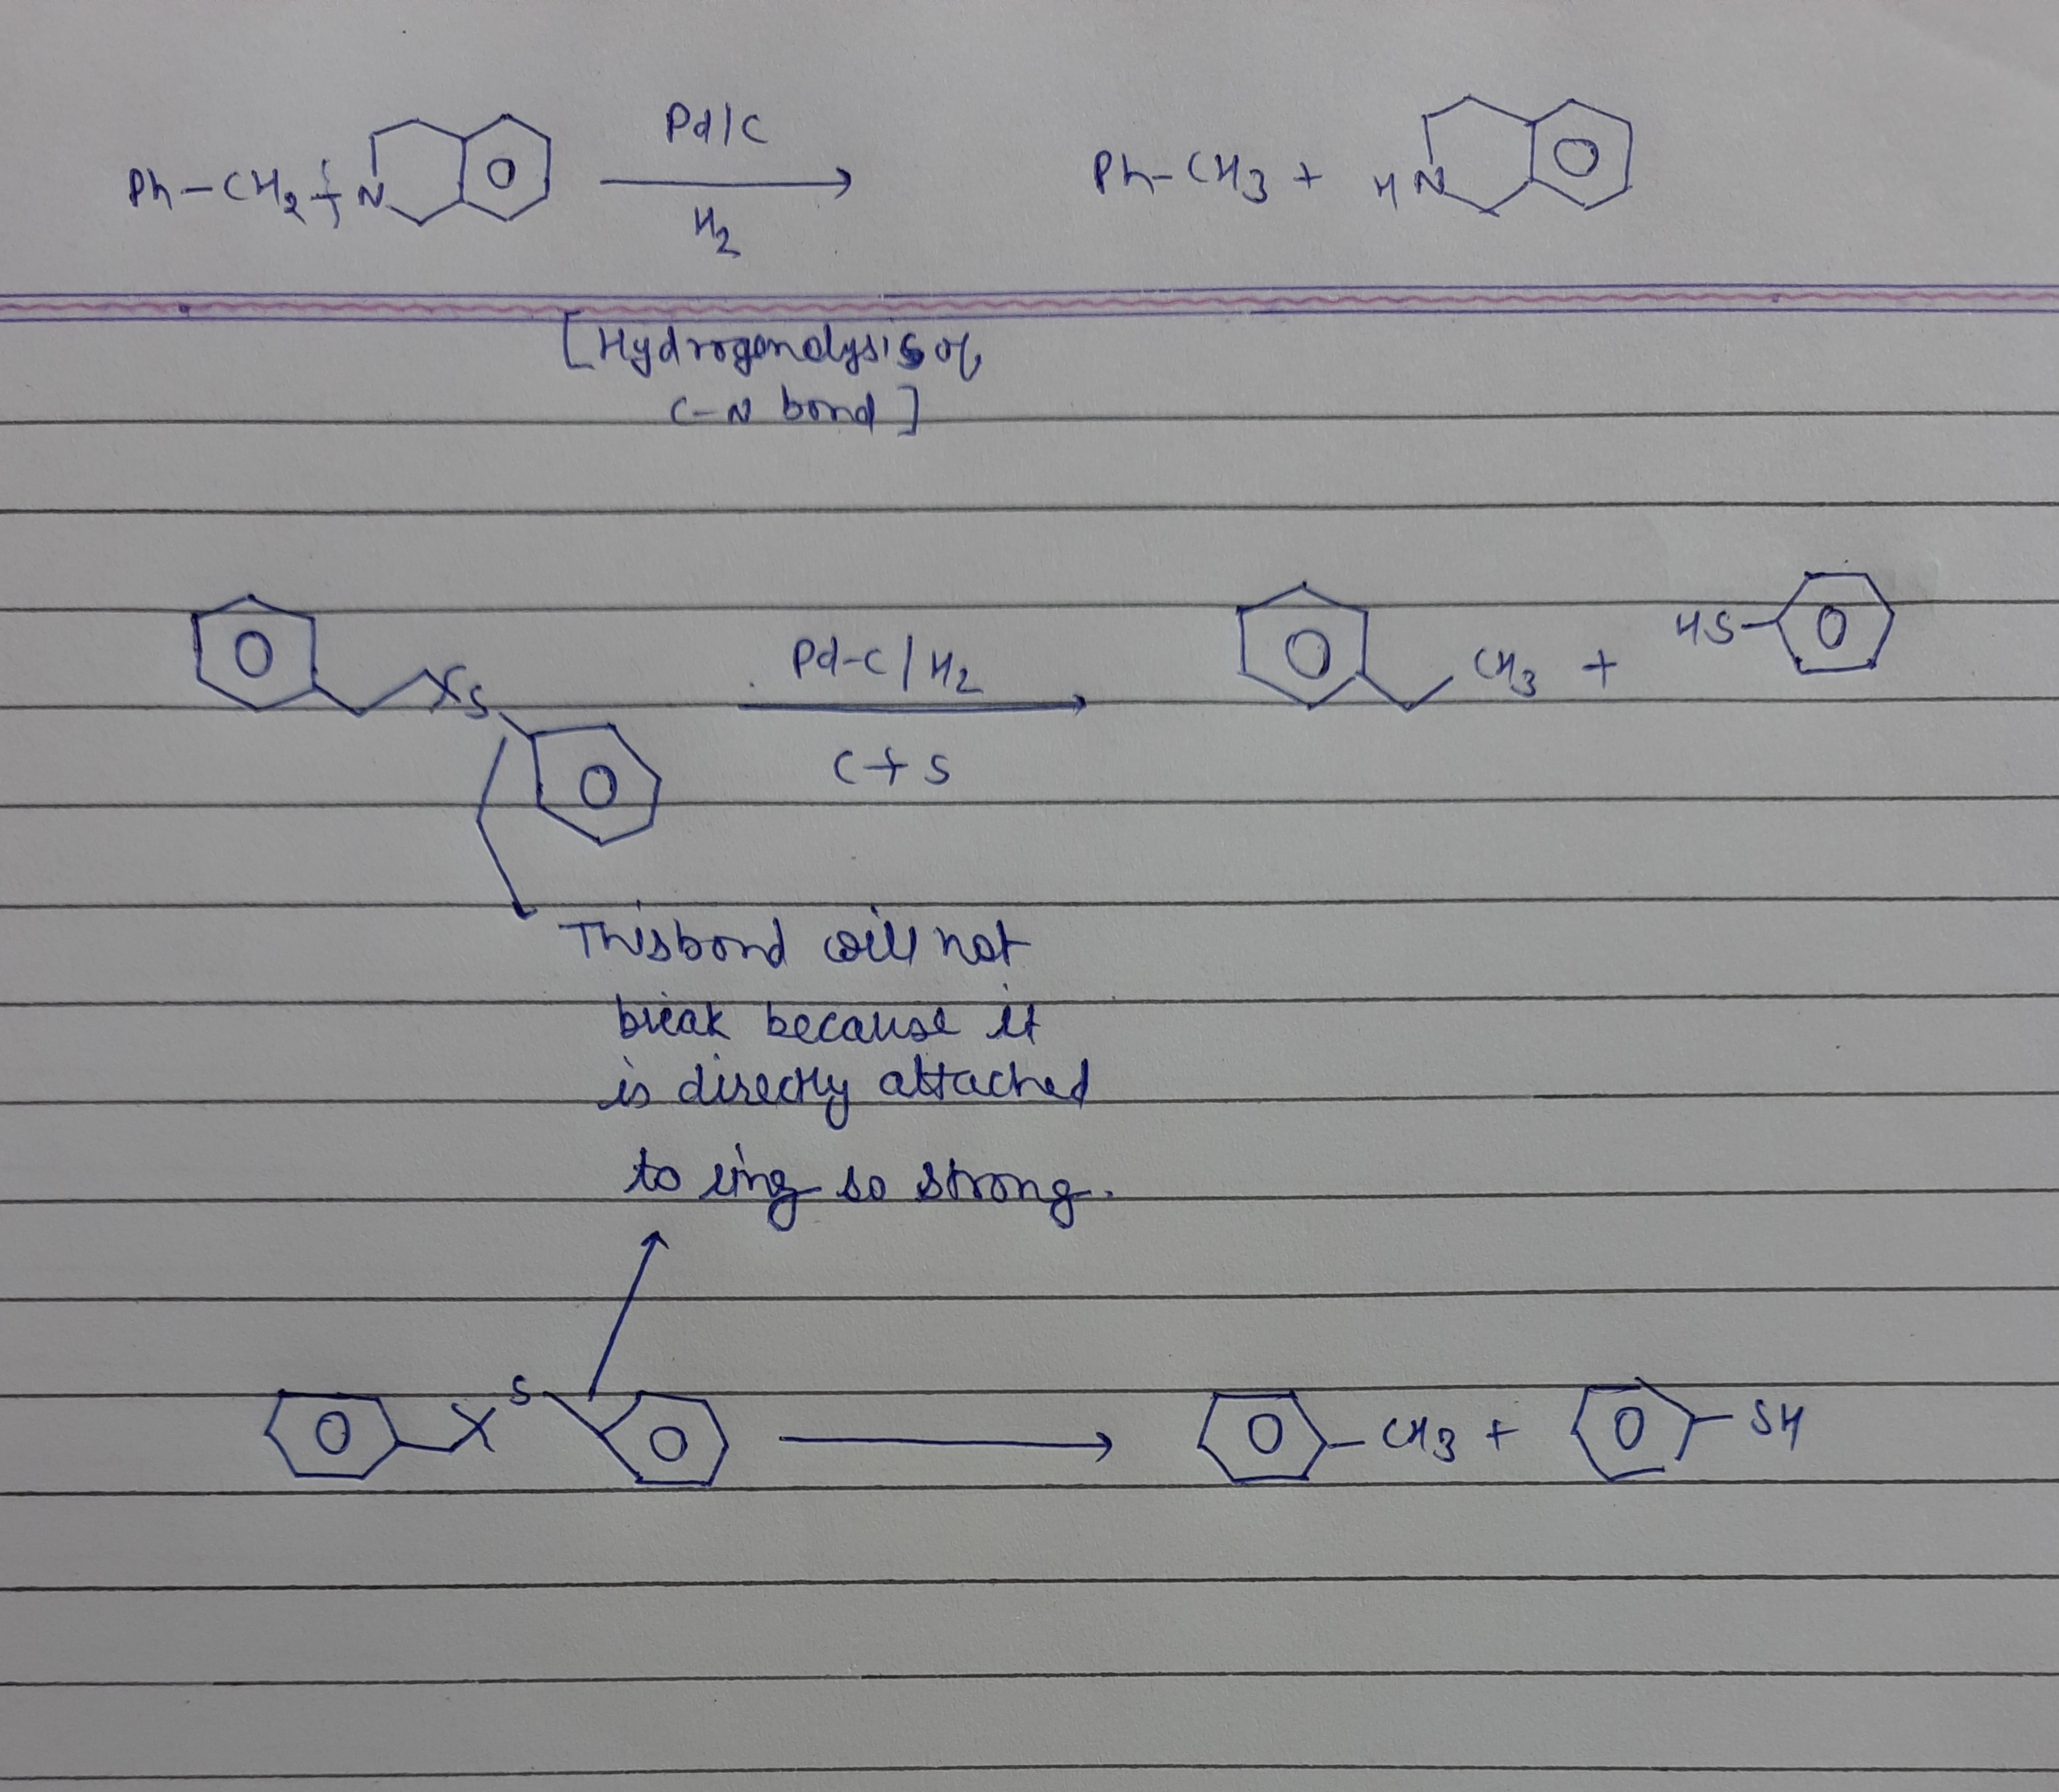 Pd/C
Ph-CH2 N → Ph-CH3 + HN
H2
[Hydrogenolysis of
C-N bond]
Pd-C/H2
S → CH3 + HS
C+S
This bond will not
break because it
is directly attached
to ring so strong.
S → CH3 + SH